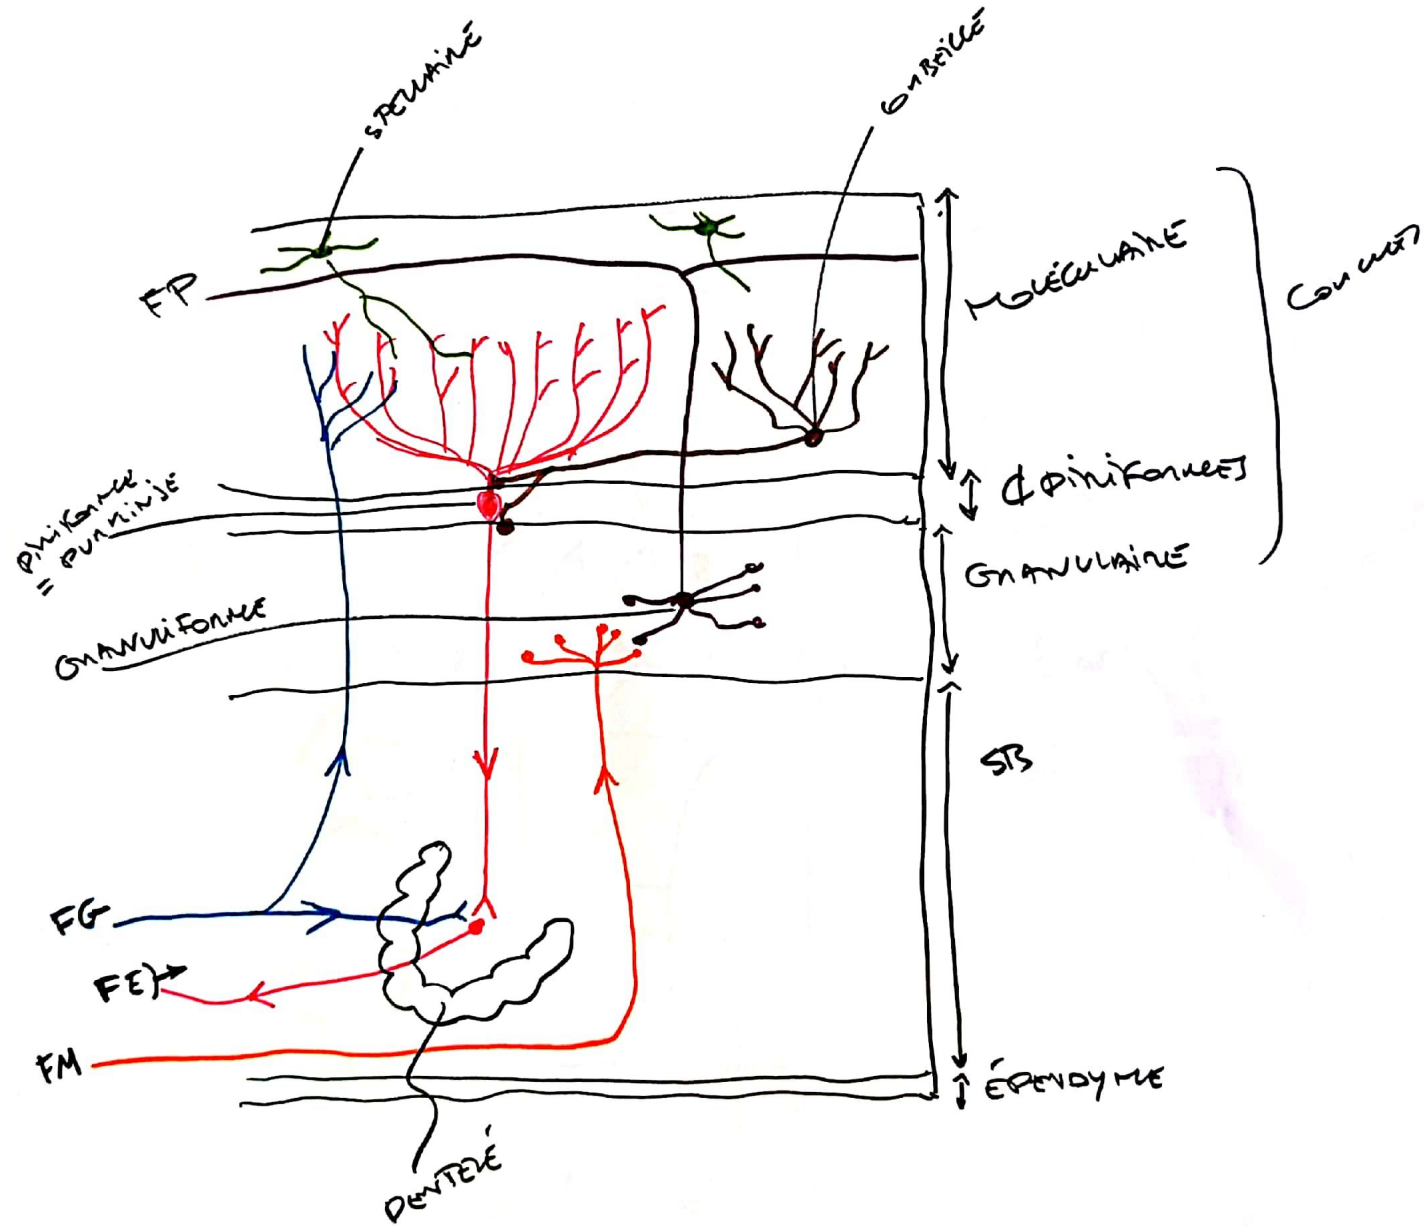 STELLAIRE
CORBEILLE
FP
MOLÉCULAIRE
PIRIFORME
= PURKINJE
¢ PIRIFORMES
GRANULAIRE
GRANULIFORME
SB
FG
FE
FM
ÉPENDYME
DENTELÉ